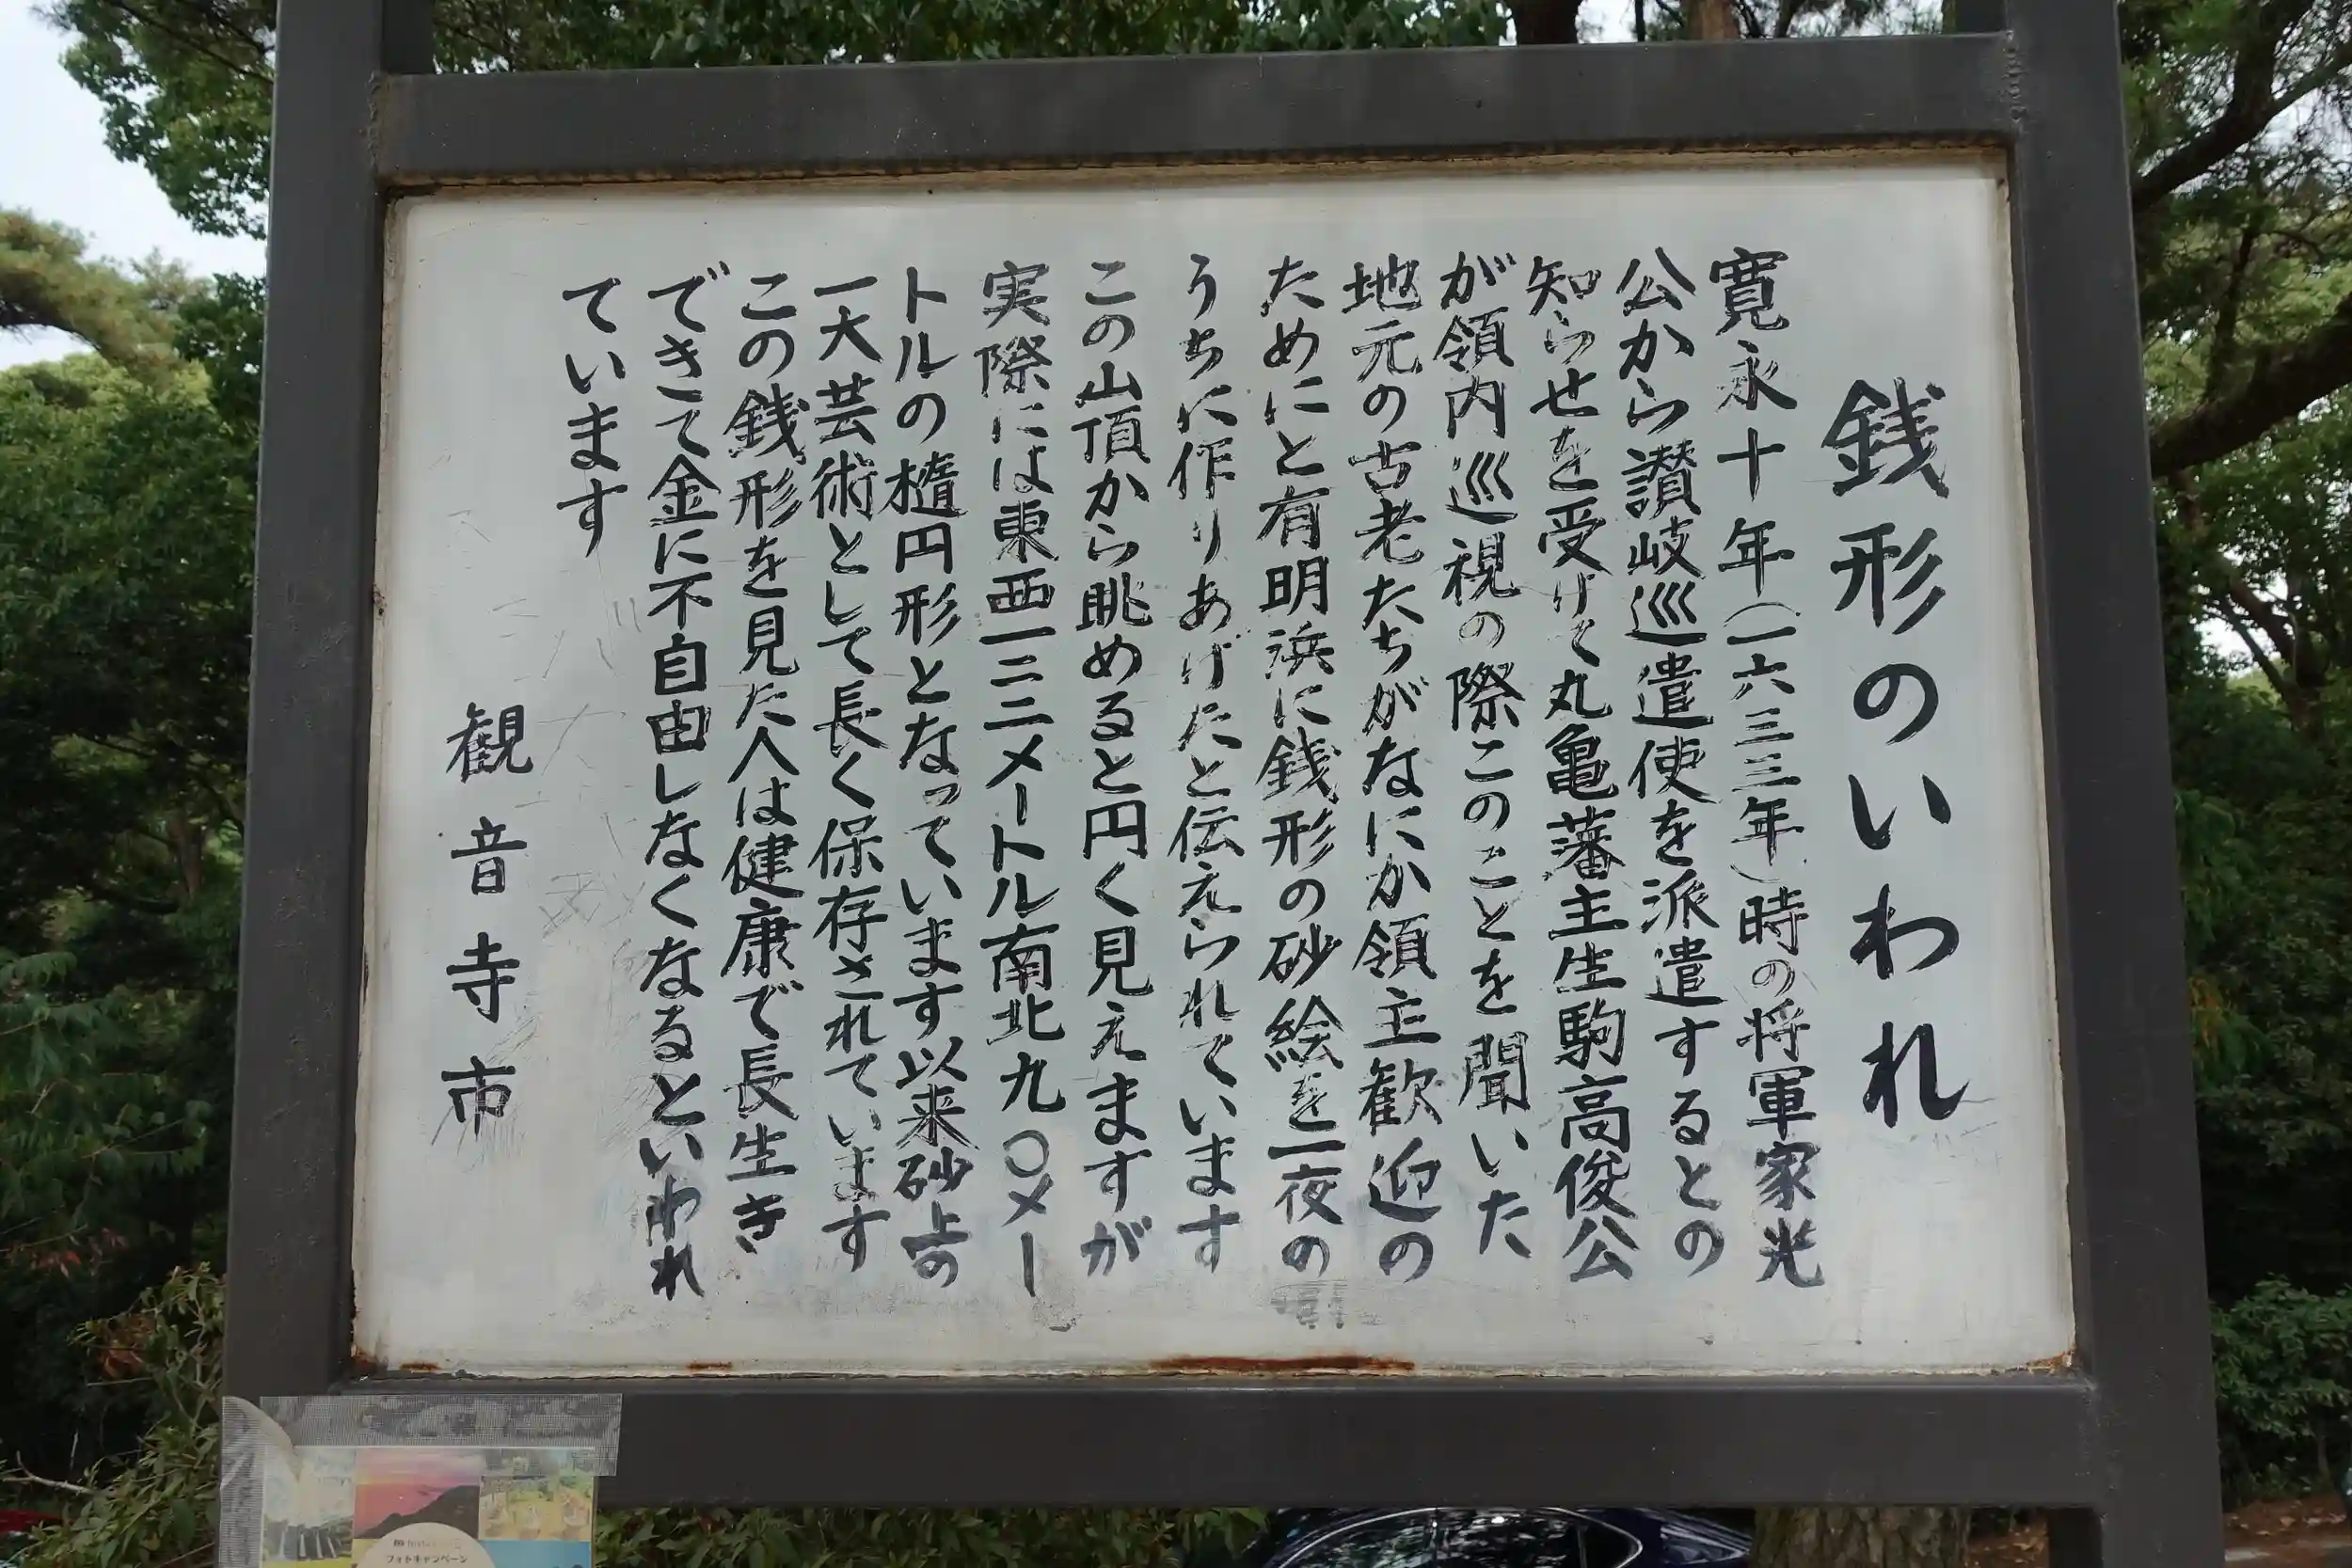 銭形のいわれ
寛永十年(一六三三年)時の将軍家光
公から讃岐巡遣使を派遣するとの
知らせを受けて丸亀藩主生駒高俊公
が領内巡視の際このことを聞いた
地元の古老たちがなにか領主歓迎の
ためにと有明浜に銭形の砂絵を一夜の
うちに作りあげたと伝えられています
この山頂から眺めると円く見えますが
実際には東西一二二メートル南北九〇メー
トルの楕円形となっています以来砂上の
一大芸術として長く保存されています
この銭形を見た人は健康で長生き
できて金に不自由しなくなるといわれ
ています
観音寺市
フォトキャンペーン